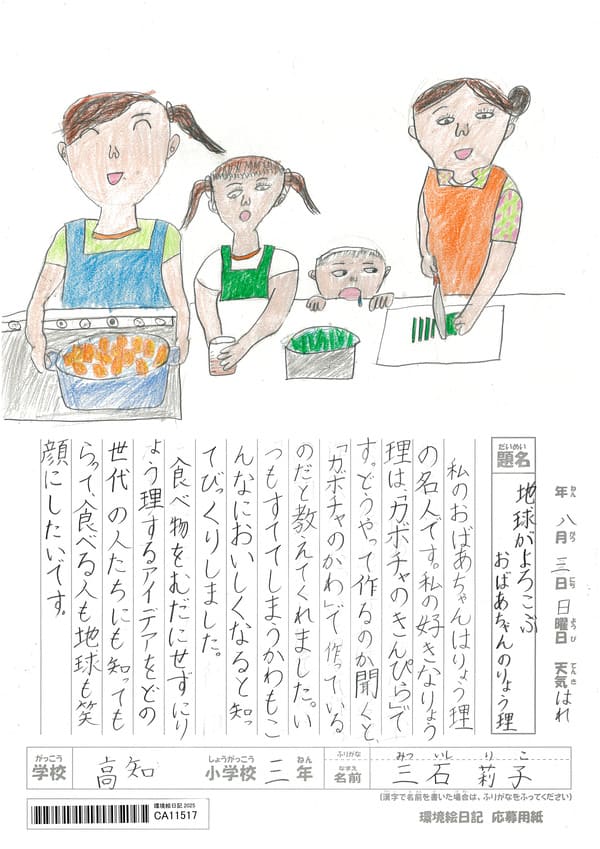 年 八月 三日 日曜日 天気 はれ
ねん がつ にち ようび てんき
だいめい
題名
地球がよろこぶ
おばあちゃんのりょう理
私のおばあちゃんはりょう理
の名人です。私の好きなりょう
理は、「カボチャのきんぴら」で
す。どうやって作るのか聞くと、
「カボチャのかわ」で作っている
のだと教えてくれました。い
つもすててしまうかわもこ
んなにおいしくなると知っ
てびっくりしました。
食べ物をむだにせずにり
ょう理するアイデアをどの
世代の人たちにも知っても
らって、食べる人も地球も笑
顔にしたいです。
がっこう
学校
高知
しょうがっこう
小学校
三
ねん
年
ふりがな
なまえ
名前
みついし りこ
三石 莉子
(漢字で名前を書いた場合は、ふりがなをふってください)
環境絵日記 2025
CA11517
環境絵日記 応募用紙